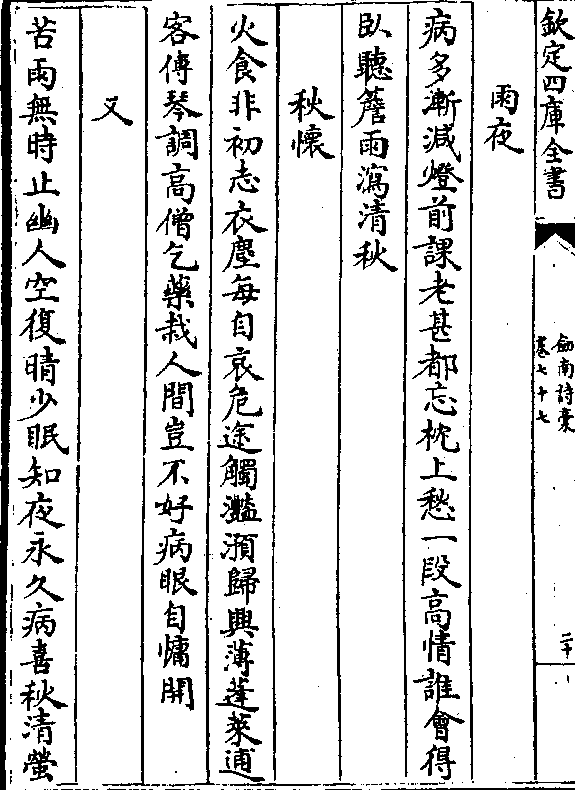 欽定四庫全書
劍南詩稾
卷七十七
二十
雨夜
病多漸減燈前課老甚都忘枕上愁一段高情誰會得
臥聽簷雨瀉清秋
秋懷
火食非初志衣塵每自哀危途觸灩澦歸興薄蓬萊逋
客傳琴調高僧乞藥栽人間豈不好病眼自慵開
又
苦雨無時止幽人空復晴少眠知夜永久病喜秋清螢